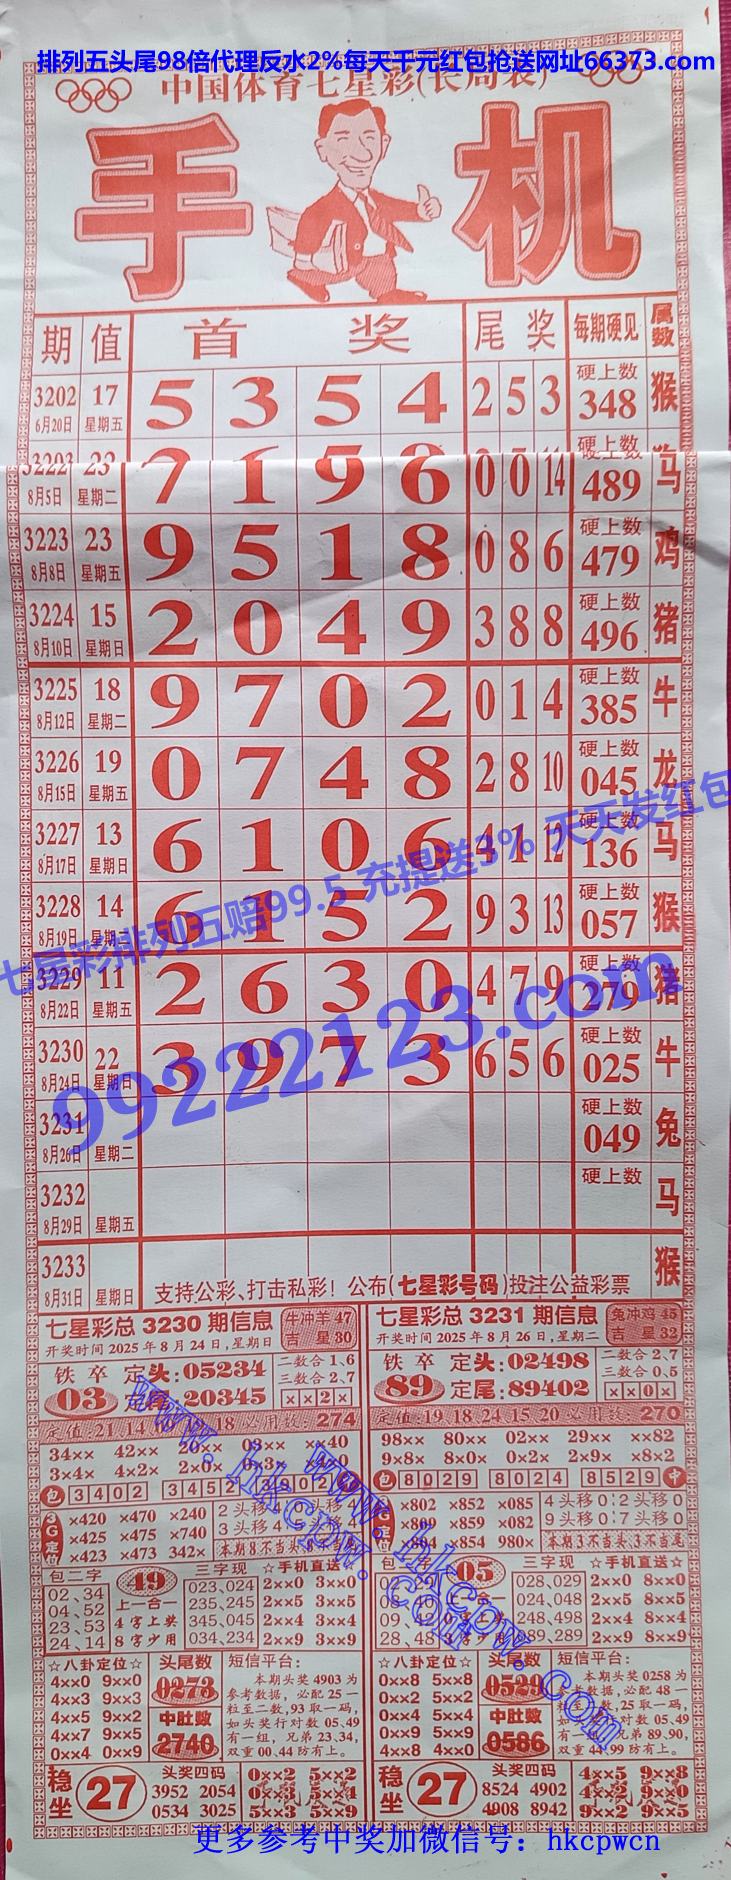 排列五头尾98倍代理反水2%每天千元红包抢送网址66373.com
中国体育七星彩(长局表)
手机
期 值 首奖 尾奖 每期硬见 属数
3202 17 5 3 5 4 2 5 3 硬上数 348 猴
6月20日 星期五
7 1 9 6 0 0 14 硬上数 489 马
8月5日 星期二
3223 23 9 5 1 8 0 8 6 硬上数 479 鸡
8月8日 星期五
3224 15 2 0 4 9 3 8 8 硬上数 496 猪
8月10日 星期日
3225 18 9 7 0 2 0 1 4 硬上数 385 牛
8月12日 星期二
3226 19 0 7 4 8 2 8 10 硬上数 045 龙
8月15日 星期五
3227 13 6 1 0 6 4 1 12 硬上数 136 马
8月17日 星期日
3228 14 6 1 5 2 9 3 13 硬上数 057 猴
8月19日 星期二
七星彩排列五赔99.5 充提送3% 天天发红包
3229 11 2 6 3 0 4 7 9 硬上数 279 猪
8月22日 星期五
99222123.com
3230 22 3 9 7 3 6 5 6 硬上数 025 牛
8月24日 星期日
3231 硬上数 049 兔
8月26日 星期二
3232 硬上数 马
8月29日 星期五
3233 猴
8月31日 星期日 支持公彩、打击私彩！公布(七星彩号码)投注公益彩票
七星彩总 3230 期信息
牛冲羊 47
吉星 30
开奖时间 2025年8月24日,星期日
铁卒 定头:05234
03 定尾:20345
二数合 1、6
三数合 2、7
××2×
必用数:274
34×× 42×× 20×× 03×× ××40
3×4× 4×2× 2×0× 0×3×
包 3402 3452 3902
3G定位
×420 ×470 ×240
×425 ×475 ×740
×423 ×473 342×
包二字
02、34
04、52
23、53
24、14
49
上一合一
4字上奖
8字少用
三字现
023、024
235、245
345、045
034、234
☆手机直送☆
2××0 3××0
2××5 3××5
2××4 3××4
2××9 3××9
☆八卦定位☆
4××0 9××0
4××3 9××3
4××5 9××2
4××7 9××5
0××4 0××9
头尾数
0273
中肚数
2740
短信平台:
本期头奖4903为
参考数据，必配25一
粒至二数,93取一码,
如头奖行对数05、49
有一组，兄弟23、34,
双重00、44防有上。
稳坐 27
头奖四码
3952 2054
0534 3025
0××2 5××2
5××3 5××9
七星彩总 3231 期信息
兔冲鸡 45
吉星 32
开奖时间 2025年8月26日,星期二
铁卒 定头:02498
89 定尾:89402
二数合 2、7
三数合 0、5
××0×
定值:19 18 24 15 20 必用数:270
98×× 80×× 02×× 29×× ××82
9×8× 8×0× 0×2× 2×9× ×8×2
包 8029 8024 8529 中
3G定位
×802 ×852 ×085
×809 ×859 ×082
×804 ×854 980×
4头移0:2头移0
9头移0:7头移0
本期3不当头,3不当尾
05
三字现
028、029
024、048
248、498
989、289
☆手机直送☆
2××0 8××0
2××5 8××5
2××4 8××4
2××9 8××9
☆八卦定位☆
0××8 5××8
0××2 5××4
0××4 5××2
0××9 5××9
4××8 4××0
头尾数
0529
中肚数
0586
短信平台:
本期头奖0258为
参考数据，必配48一
粒至二数,25取一码,
如头奖行对数05、49
有一组，兄弟89、90,
双重44、99防有上。
稳坐 27
头奖四码
8524 4902
4908 8942
4××5 9××8
9××2 9××5
www.hkcpw.com
www.hkcpw.com
更多参考中奖加微信号：hkcpwcn